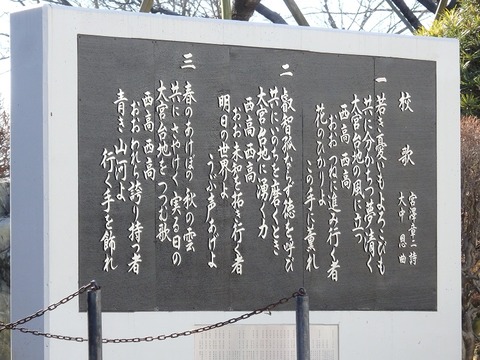 校歌
宮澤章二 詩
大中恩 曲
一
若き憂いもよろこびも
共に分かちつ夢清く
大宮台地の風に立つ
西高 西高
おお つねに進み行く者
花のひかり この手に薫れ
二
叡智孤ならず徳を呼び
共にいのちを磨くとき
大宮台地に湧く力
西高 西高
おお 未知を拓き行く者
明日の世界よ うぶ声あげよ
三
春のあけぼの 秋の雲
共にさやけく実る日の
大宮台地をつつむ歌
西高 西高
おお われら誇り持つ者
青き山河よ 行く手を飾れ